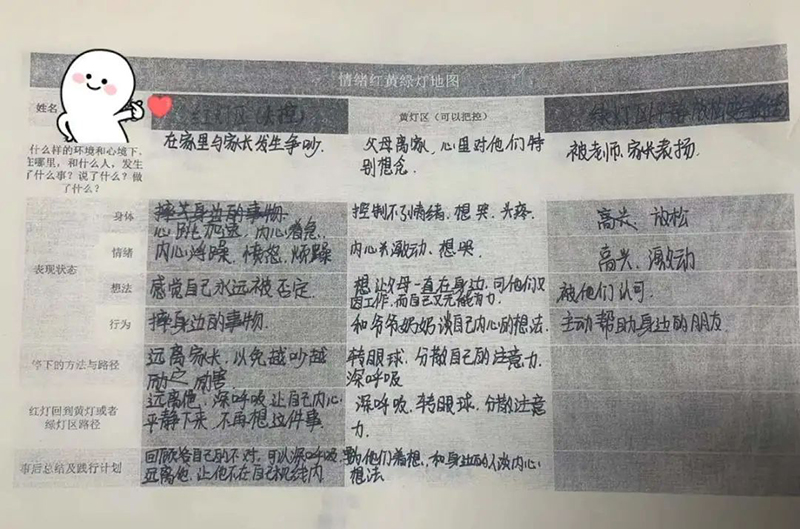 情绪红黄绿灯地图
姓名
红灯区（失控）
黄灯区（可以把控）
绿灯区
什么样的环境和心境下，
在哪里，和什么人，发生
了什么事？说了什么？做
了什么？
在家里与家长发生争吵.
父母离家，心里对他们特
别想念
被老师、家长表扬
表现状态
身体
摔关身边的事物.
心跳加速、内心着急
控制不了情绪、想哭、头疼.
高兴、放松
情绪
内心浮躁、愤怒、烦躁
内心关激动、想哭.
高兴、激动
想法
感觉自己永远被否定.
想让父母一直在身边，可他们又
因工作，而自己又无能为力.
被他们认可.
行为
摔身边的事物.
和爷爷奶奶谈自己内心的想法.
主动帮助身边的朋友.
停下的方法与路径
远离家长，以免越吵越
厉害
转眼球、分散自己的注意力.
深呼吸
红灯回到黄灯或者
绿灯区路径
远离他，深呼吸，让自己内心
平静下来，不再想这件事.
深呼吸、转眼球、分散注意
力.
事后总结及践行计划
回顾自己的不对，可以深呼吸
远离他，让他不在自己视线内
为他们着想，和身边的人谈内心
想法